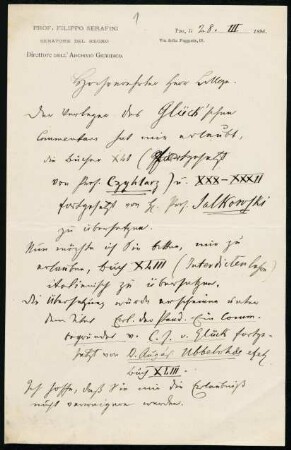 1
PROF. FILIPPO SERAFINI
SENATORE DEL REGNO
Direttore dell' Archivio Giuridico
Pisa, li 28. III 189
Via
Hochverehrter Herr College.
Der Verleger des Glück'schen
Commentars hat mir erlaubt,
die Bücher XLI (fortgesetzt
von Prof. Czyhlarz) u. XXX–XXXII
fortgesetzt von H. Prof. Salkowski
zu übersetzen.
Nun möchte ich Sie bitten, mir zu
erlauben, Buch XLIII (Interdictenlehre)
italienisch zu übersetzen.
Die Übersetzung würde erscheinen unter
dem Titel Erl. der Pand. Ein Comm.
begründet v. C. F. v. Glück fortge-
setzt von D. August Ubbelohde etc.
Buch XLIII.
Ich hoffe, daß Sie mir die Erlaubniß
nicht verweigern werden.